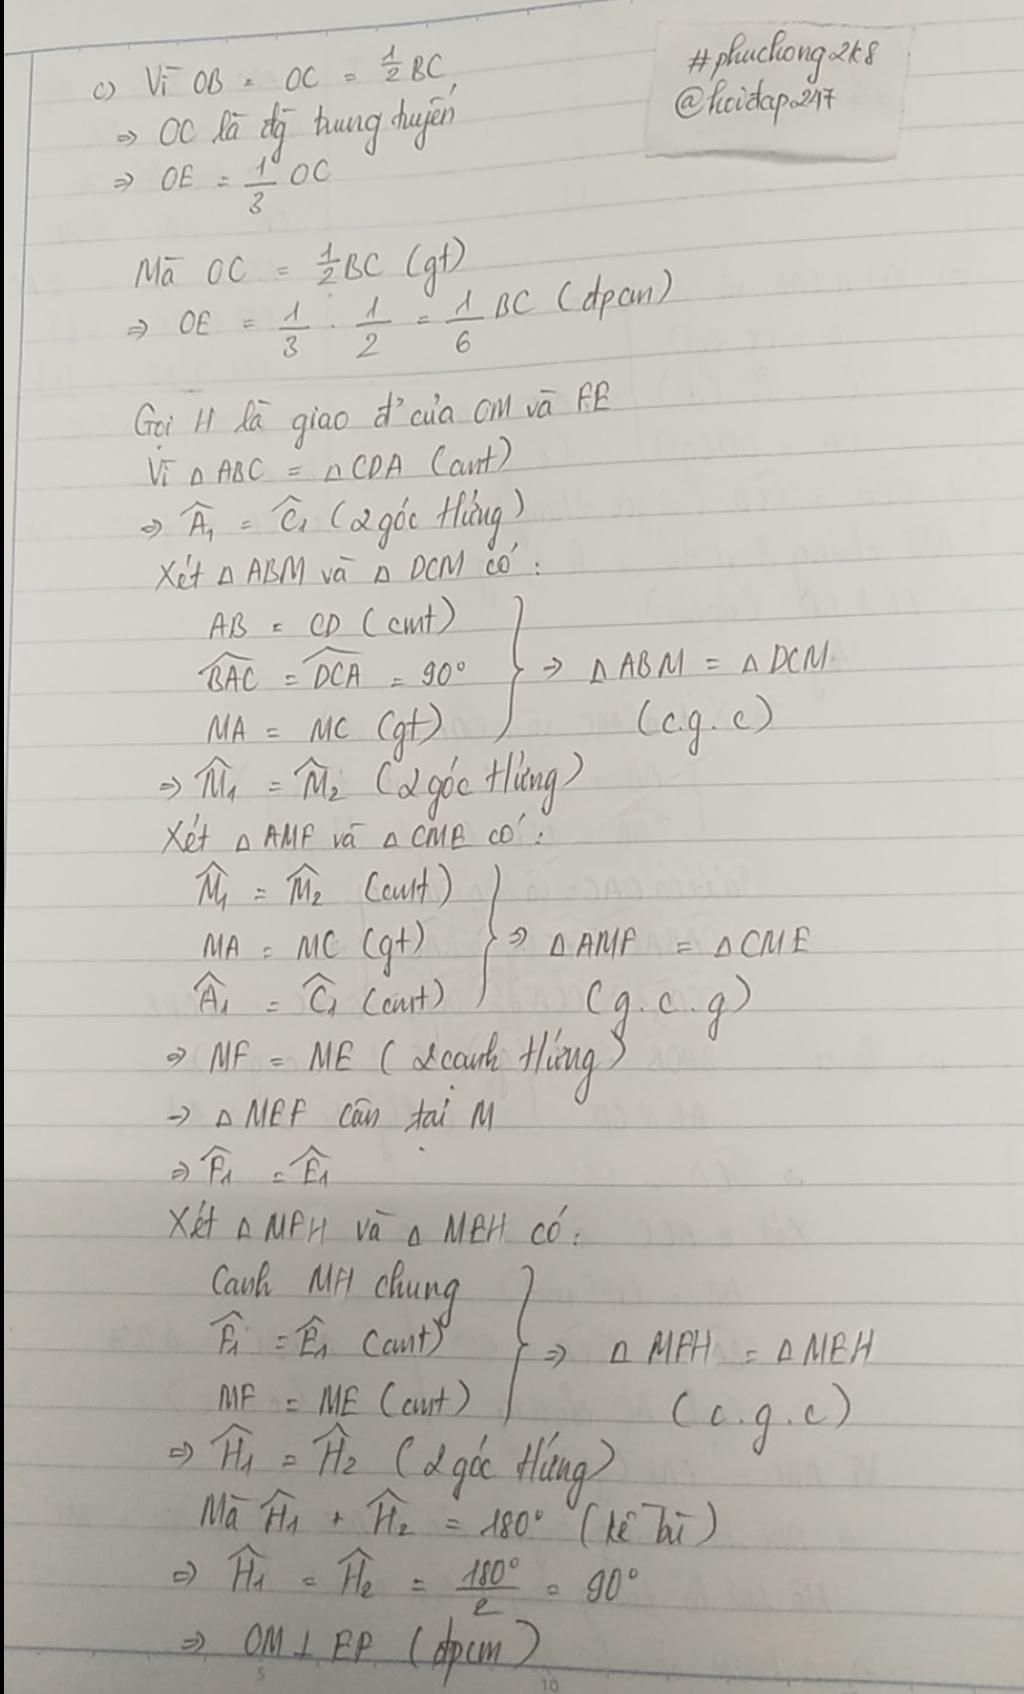 #phuchong2k8
@hoidap247
c) Vì OB = OC = 1/2 BC
=> OC là đg trung tuyến
=> OE = 1/3 OC
Mà OC = 1/2 BC (gt)
=> OE = 1/3 . 1/2 = 1/6 BC (đpcm)
Gọi H là giao đ' của OM và FE
Vì △ ABC = △ CDA (cmt)
=> Â₁ = Ĉ₁ (2 góc t/ứng)
Xét △ ABM và △ DCM có:
AB = CD (cmt)
BAC = DCA = 90° } => △ ABM = △ DCM
MA = MC (gt) (c.g.c)
=> M̂₁ = M̂₂ (2 góc t/ứng)
Xét △ AMF và △ CME có:
M̂₁ = M̂₂ (cmt)
MA = MC (gt) } => △ AMF = △ CME
Â₁ = Ĉ₁ (cmt) (g.c.g)
=> MF = ME (2 cạnh t/ứng)
-> △ MEF cân tại M
=> F̂₁ = Ê₁
Xét △ MFH và △ MEH có:
Cạnh MH chung
F̂₁ = Ê₁ (cmt) } => △ MFH = △ MEH
MF = ME (cmt) (c.g.c)
=> Ĥ₁ = Ĥ₂ (2 góc t/ứng)
Mà Ĥ₁ + Ĥ₂ = 180° (kề bù)
=> Ĥ₁ = Ĥ₂ = 180°/2 = 90°
=> OM ⊥ EF (đpcm)
5 10